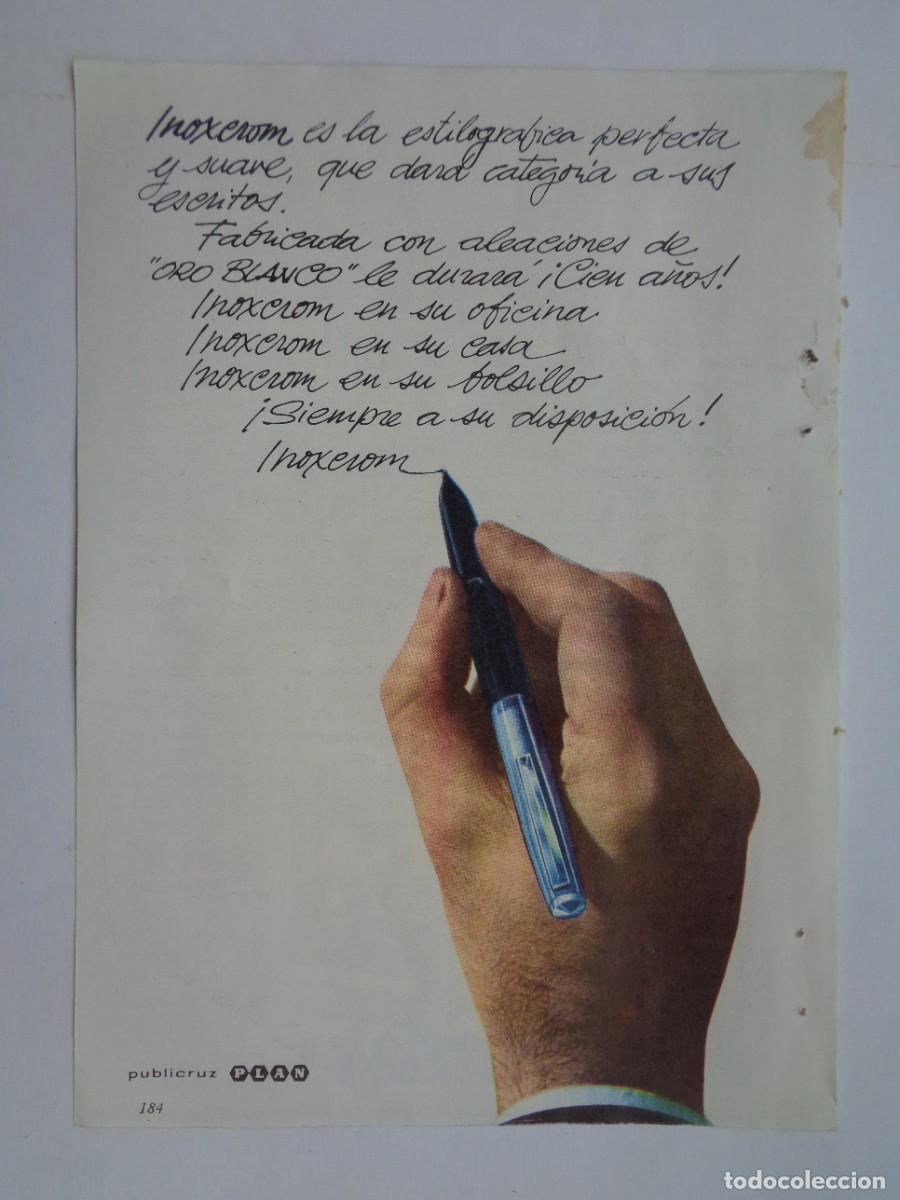 Inoxcrom es la estilografica perfecta
y suave, que dará categoría a sus
escritos.
Fabricada con aleaciones de
"ORO BLANCO" le durará ¡Cien años!
Inoxcrom en su oficina
Inoxcrom en su casa
Inoxcrom en su bolsillo
¡Siempre a su disposición!
Inoxcrom
publicruz PLAN
184
todocoleccion